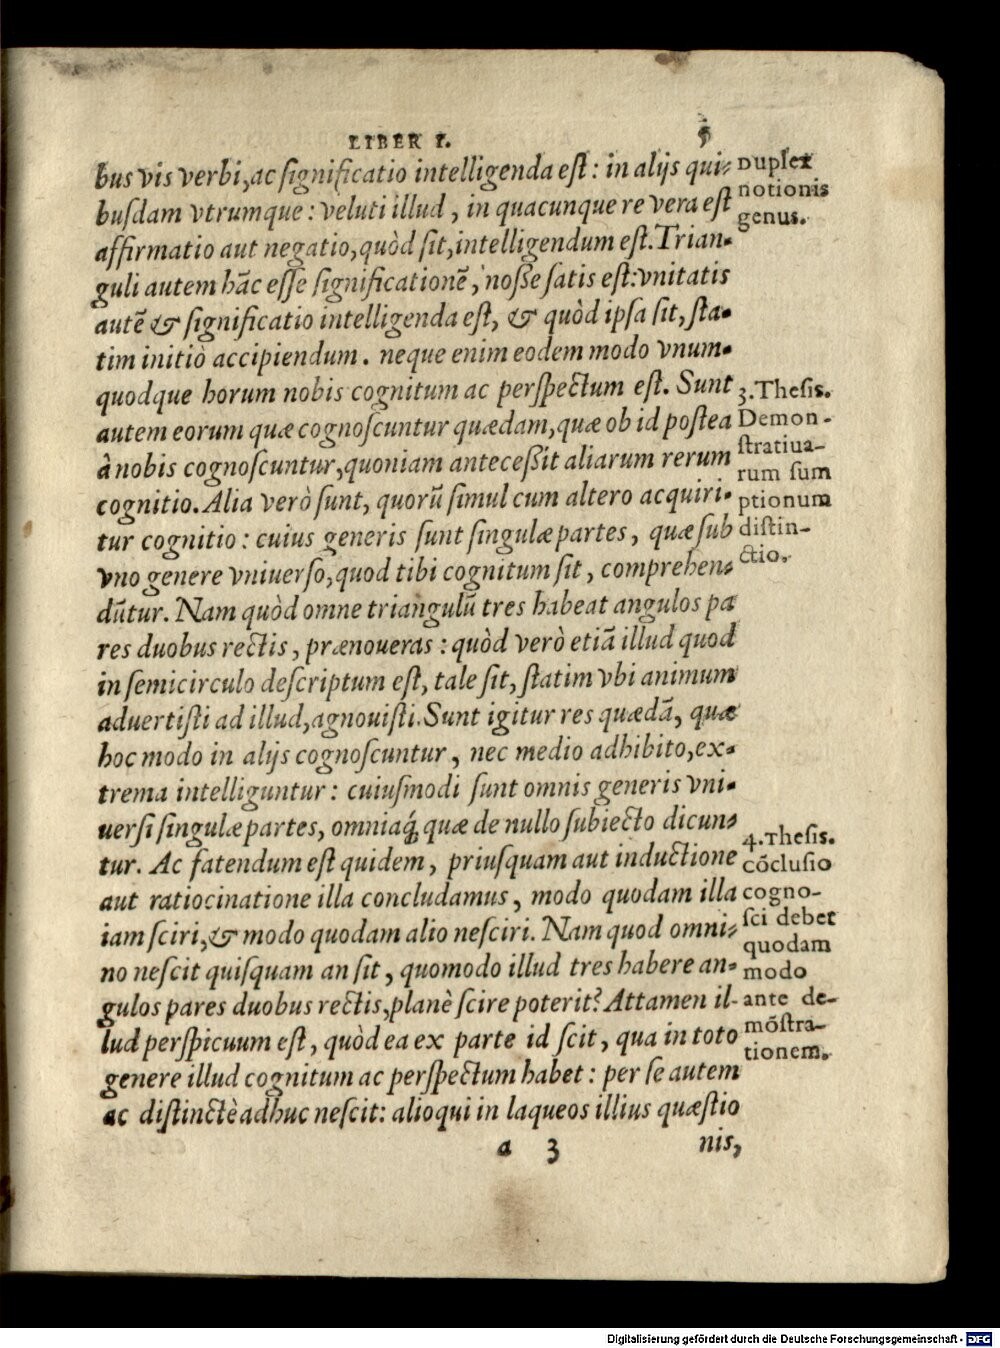 LIBER I. 5
bus vis verbi, ac significatio intelligenda est: in alijs qui-
busdam vtrumque: veluti illud, in quacunque re vera est
affirmatio aut negatio, quòd sit, intelligendum est. Trian-
guli autem hāc esse significationē, nosse satis est: vnitatis
autē & significatio intelligenda est, & quòd ipsa sit, sta-
tim initiò accipiendum. neque enim eodem modo vnum-
quodque horum nobis cognitum ac perspectum est. Sunt
autem eorum quæ cognoscuntur quædam, quæ ob id postea
à nobis cognoscuntur, quoniam antecessit aliarum rerum
cognitio. Alia verò sunt, quorū simul cum altero acquiri-
tur cognitio: cuius generis sunt singulæ partes, quæ sub
vno genere vniuerso, quod tibi cognitum sit, comprehen-
dūtur. Nam quòd omne triangulū tres habeat angulos pa
res duobus rectis, prænoueras: quòd verò etiā illud quod
in semicirculo descriptum est, tale sit, statim vbi animum
aduertisti ad illud, agnouisti. Sunt igitur res quædā, quæ
hoc modo in alijs cognoscuntur, nec medio adhibito, ex-
trema intelliguntur: cuiusmodi sunt omnis generis vni-
uersi singulæ partes, omniaq́; quæ de nullo subiecto dicun-
tur. Ac fatendum est quidem, priusquam aut inductione
aut ratiocinatione illa concludamus, modo quodam illa
iam sciri, & modo quodam alio nesciri. Nam quod omni-
no nescit quisquam an sit, quomodo illud tres habere an-
gulos pares duobus rectis, planè scire poterit? Attamen il-
lud perspicuum est, quòd ea ex parte id scit, qua in toto
genere illud cognitum ac perspectum habet: per se autem
ac distinctè adhuc nescit: alioqui in laqueos illius quæstio
a 3 nis,
Duplex
notionis
genus.
3. Thesis.
Demon-
stratiua-
rum sum
ptionum
distin-
ctio.
4. Thesis.
cōclusio
cogno-
sci debet
quodam
modo
ante de-
mōstra-
tionem.
Digitalisierung gefördert durch die Deutsche Forschungsgemeinschaft - DFG